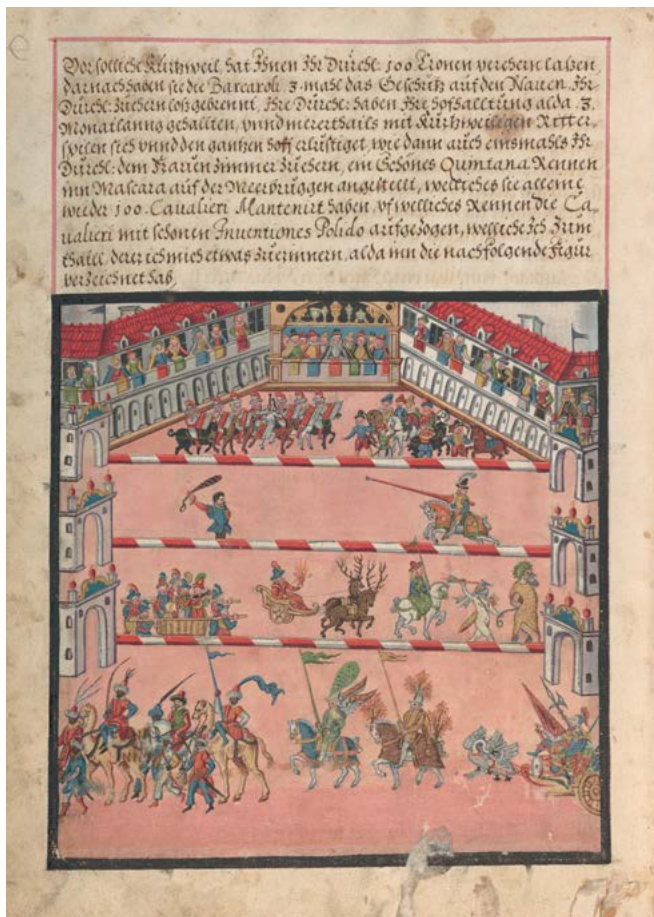 Vor solliche Kurtzweil, hat Ihnen Ihr Dürchl: 100 Cronen verehern laszen,
darnach haben sie die Barcaroli 3. mahl das Geschütz auf den Naven, Ihr
Dürchl: zu ehern losz gebrennt, Ihre Dürchl: haben Ihre hofhalltung alda .3.
Monat lanng gehallten, unnd merer thails mit Kurtzweilegen Ritter
spilen sich unnd den gantzen hoff erlüstiget, wie dann auch einsmahls Ihr
Dürchl: dem Frauen Zimmer zu ehern, ein Schönes Quintana Rennen
inn Mascara auf der Meerbruggen angestellt, wellches sie allein
wieder 100. Cavalieri Mantenirt haben, uf welliches Rennen die Ca-
valieri mit schönen Inventiones Polido aufgezogen, welliche Ich zum
thaill, derer ich mich etwas zu erinnern, alda inn die nachfolgende Figur
verzeichnet hab,